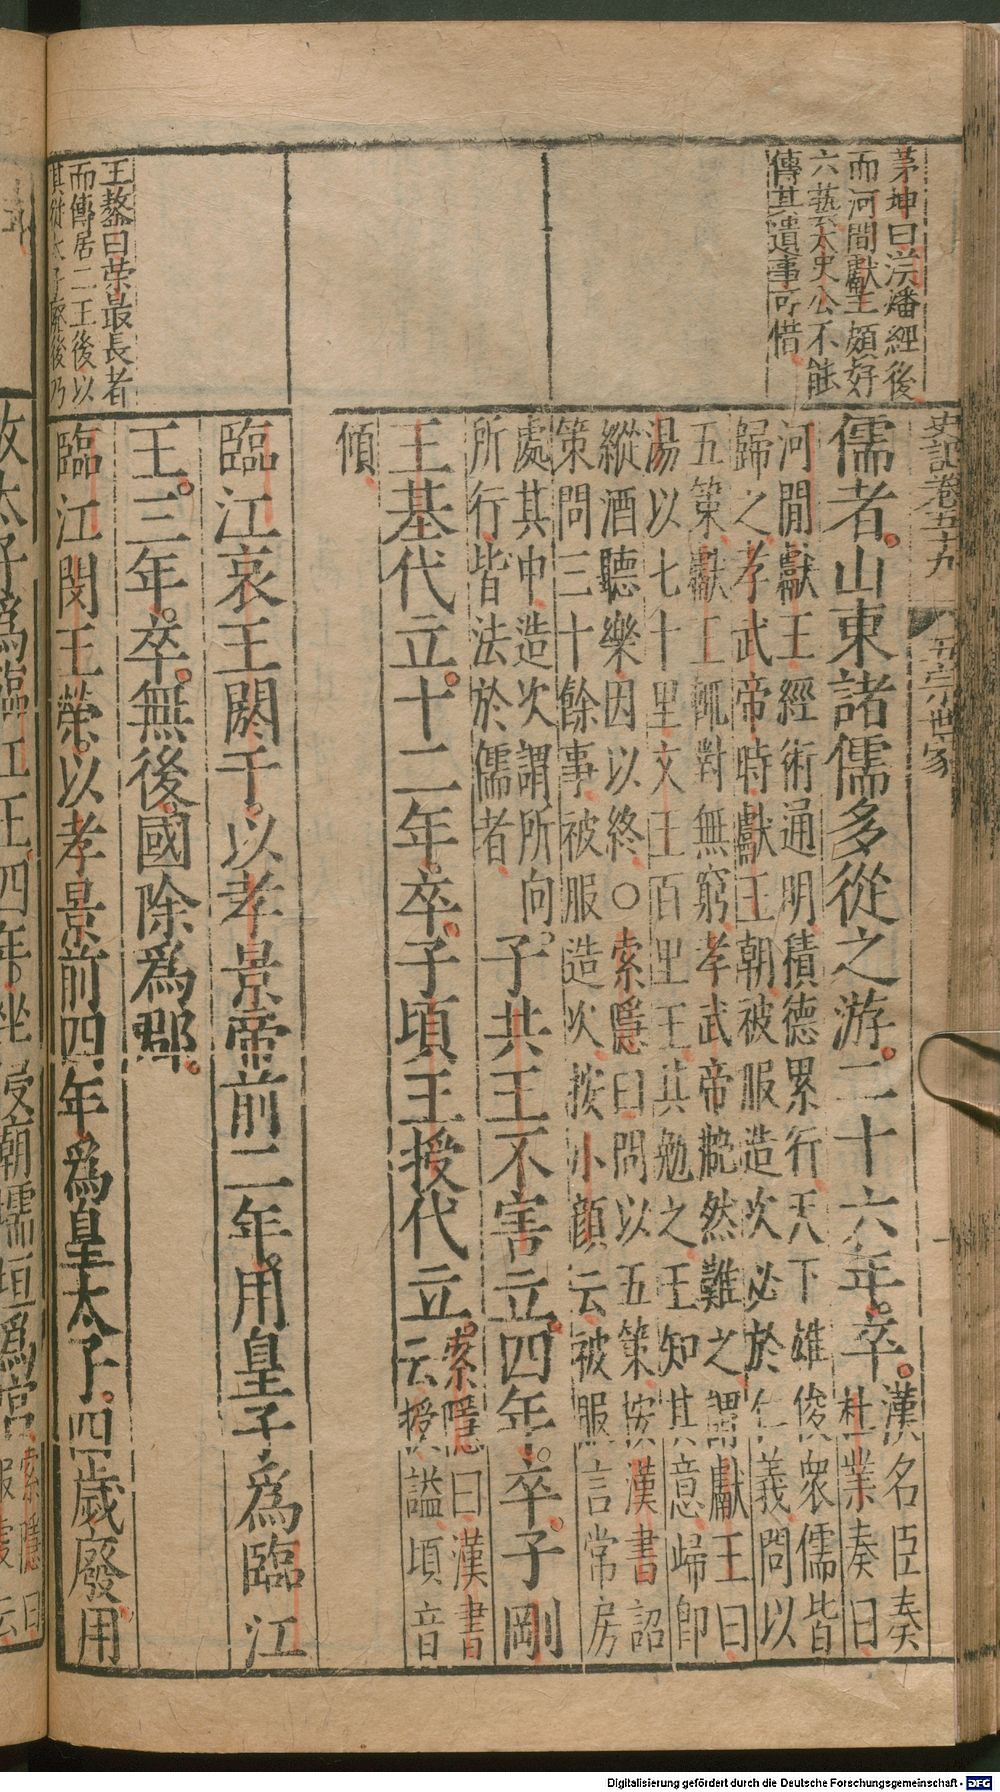 茅坤曰淤燔經後
而河間獻王頗好
六藝太史公不能
傳其遺事可惜
王鏊曰榮最長者
而傳居二王後以
其從太子廢後乃
史記卷五十九
五宗世家
儒者山東諸儒多從之游二十六年卒
漢名臣奏
杜業奏曰
河間獻王經術通明積德累行天下雄俊衆儒皆
歸之孝武帝時獻王朝被服造次必於仁義問以
五策獻王輒對無窮孝武帝艴然難之謂獻王曰
湯以七十里文王百里王其勉之王知其意歸卽
縱酒聽樂因以終○索隱曰問以五策按漢書詔
策問三十餘事被服造次按小顔云被服言常房
處其中造次謂所向
所行皆法於儒者
子共王不害立四年卒子剛
王基代立十二年卒子頃王授代立
索隱曰漢書
云授謚頃音
傾
臨江哀王閼于以孝景帝前二年用皇子爲臨江
王三年卒無後國除爲郡
臨江閔王榮以孝景前四年爲皇太子四歲廢用
故太子爲臨江王四年坐侵廟壖垣爲宮
索隱曰
服虔云
Digitalisierung gefördert durch die Deutsche Forschungsgemeinschaft - DFG